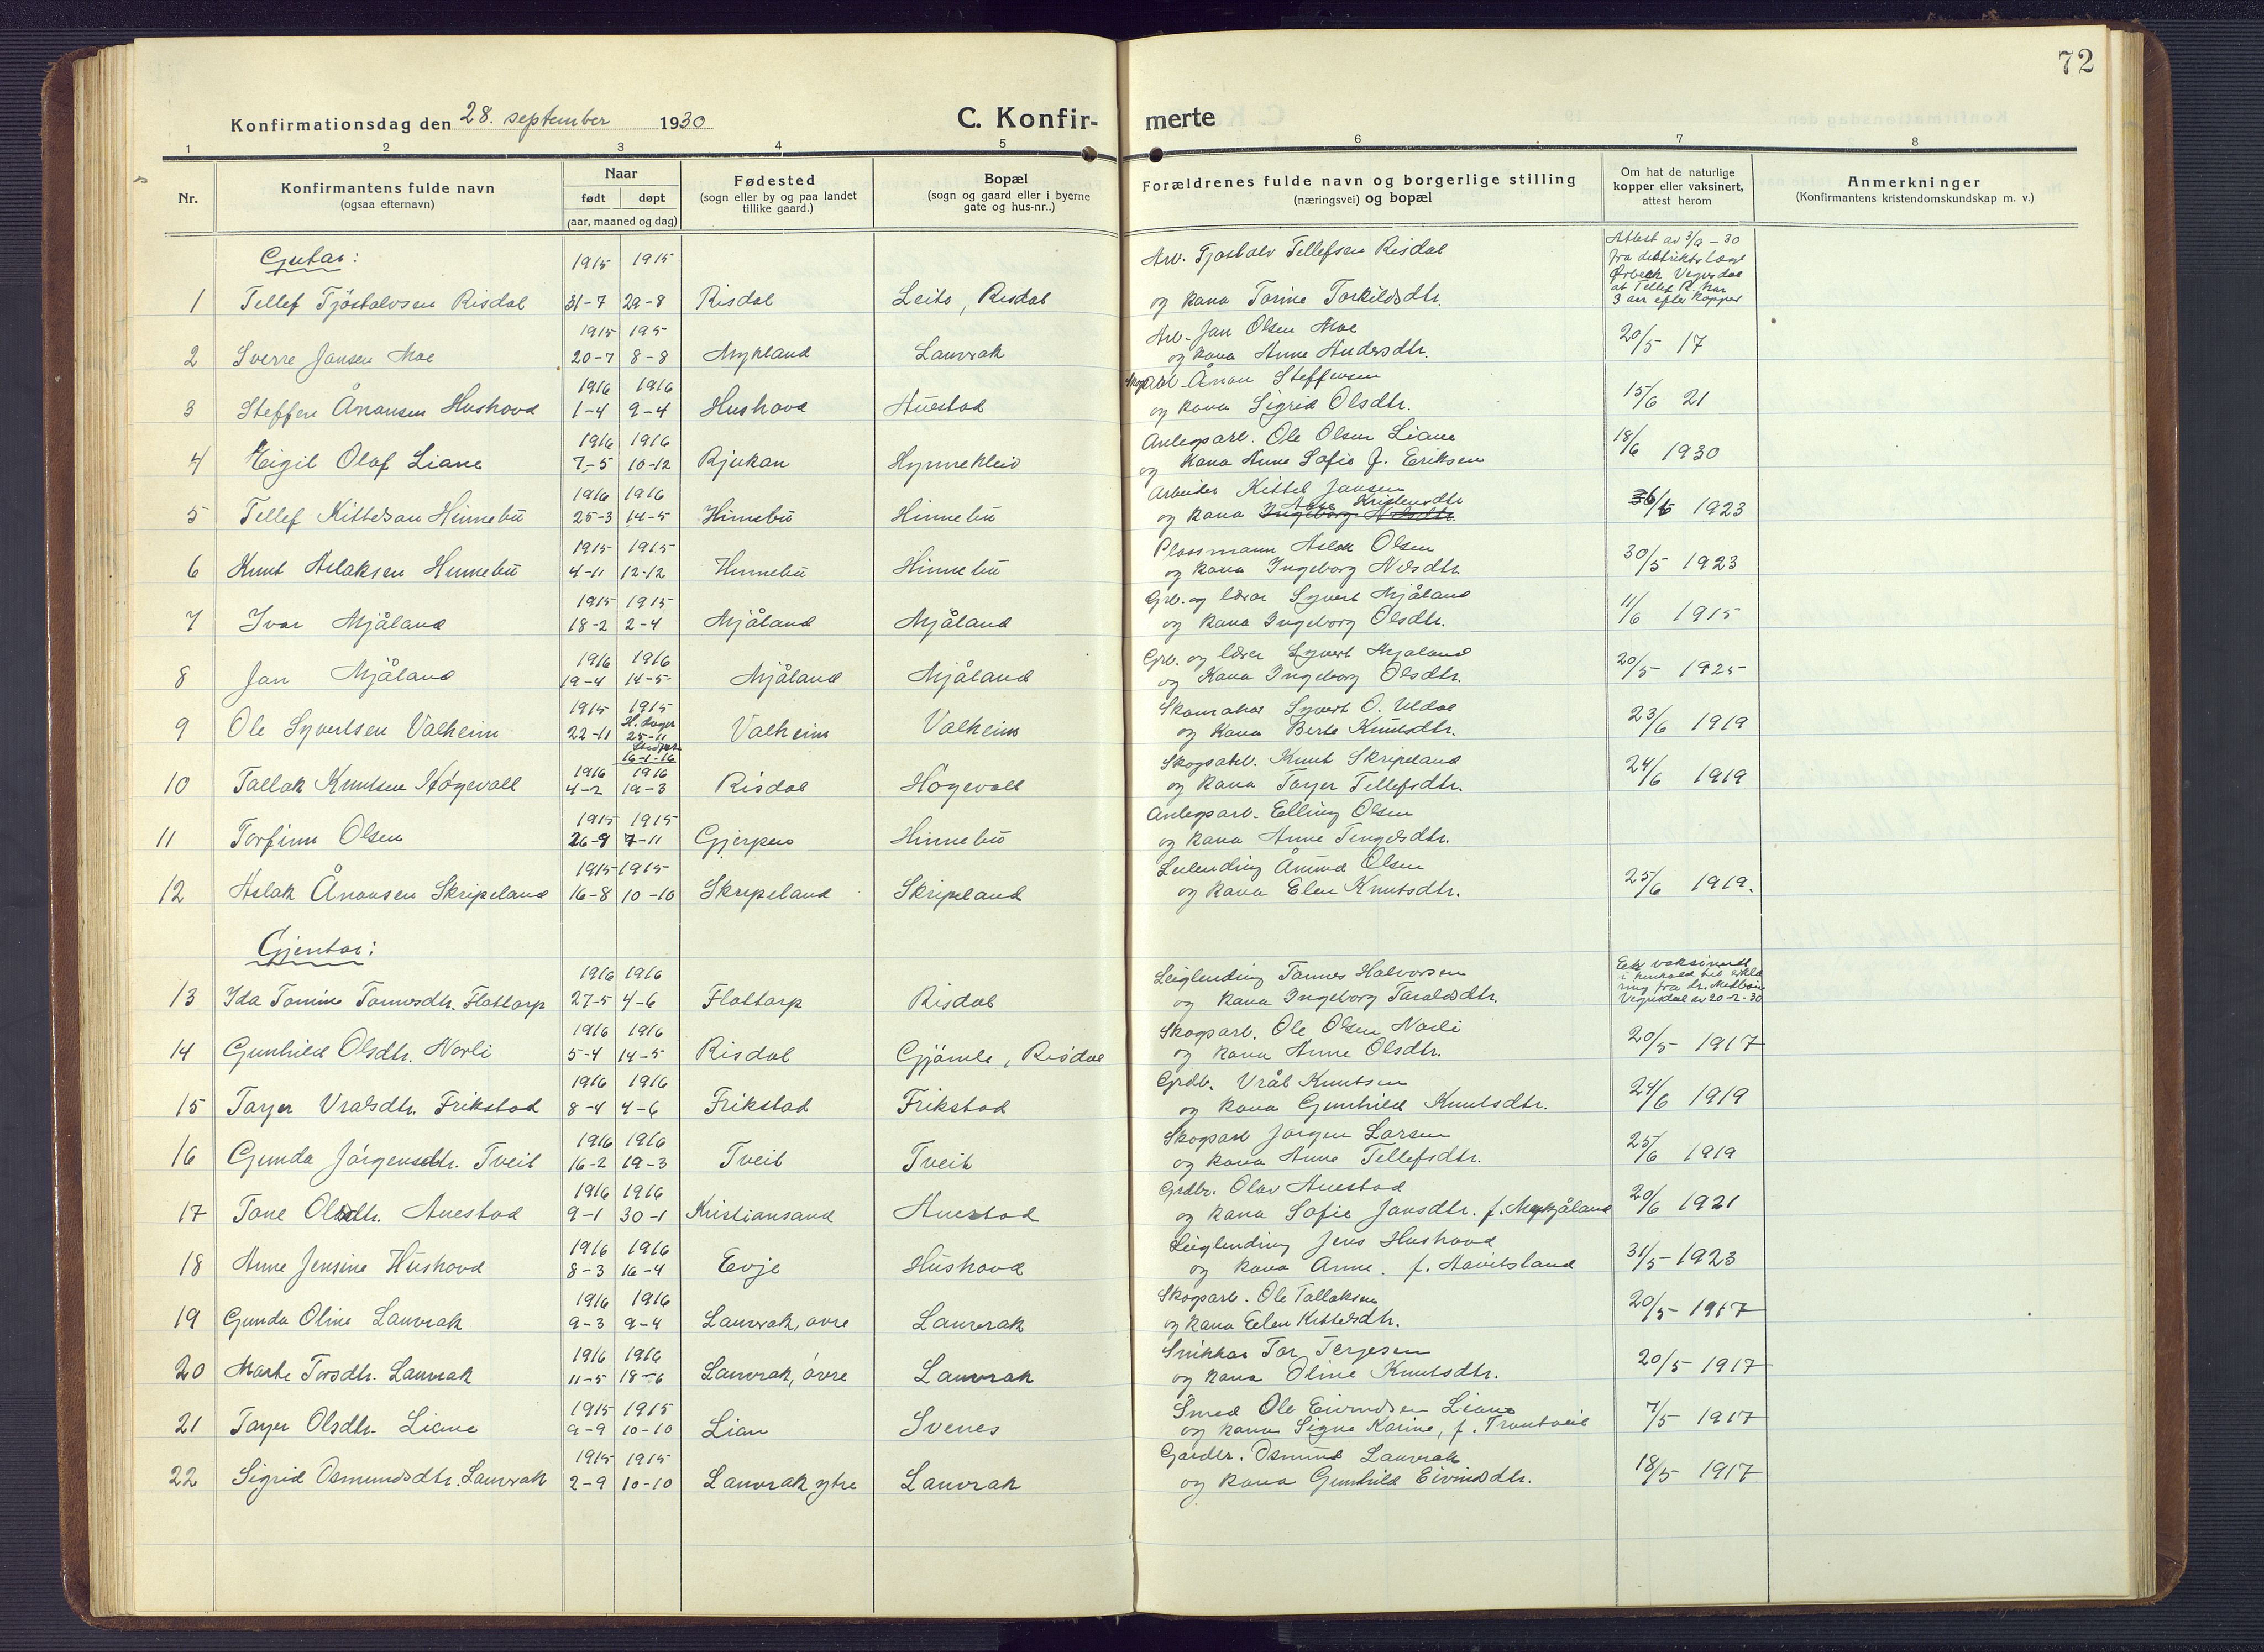 72
Konfirmationsdag den 28. september 1930
C. Konfir-merte
1 2 3 4 5 6 7 8
Nr.
Konfirmantens fulde navn
(ogsaa efternavn)
Naar
født døpt
(aar, maaned og dag)
Fødested
(sogn eller by og paa landet
tillike gaard.)
Bopæl
(sogn og gaard eller i byerne
gate og hus-nr..)
Forældrenes fulde navn og borgerlige stilling
(næringsvei) og bopæl
Om hat de naturlige
kopper eller vaksinert,
attest herom
Anmerkninger
(Konfirmantens kristendomskundskap m. v.)
Gutar:
1915 1915 Arb. Tjostolv Tellefsen Risdal Attest av 3/9-30
fra distriktslæge
Vegusdal
at Tellef R. har
3 arr efter kopper
1 Tellef Tjöstolvsen Risdal 31-7 29-8 Risdal Leite, Risdal og kona Torine Torkildsdtr.
1915 195 Arb. Jan Olsen Moe
2 Sverre Jansen Moe 20-7 8-8 Mykland Lauvrak og kona Anne Andersdtr. 20/5 17
1916 1916 Skogarb. Ånon Steffensen
3 Steffen Ånonsen Hushovd 1-4 9-4 Hushovd Auestad og kona Sigrid Olsdtr. 15/6 21
1916 1916 Anlegsarb. Ole Olsen Liane
4 Eigil Olaf Liane 7-5 10-12 Rjukan Hynnekleiv og kona Anne Sofie f. Eriksen 18/6 1930
1916 1916 Arbeider Kittel Jansen
5 Tellef Kittelsen Hinnebu 25-3 14-5 Hinnebu Hinnebu og kona Ingeborg Nilsdtr. Aase Kristensdtr 1923
1915 1915 Plassmann Aslak Olsen
6 Knut Aslaksen Hinnebu 4-11 12-12 Hinnebu Hinnebu og kona Ingeborg Nilsdtr. 30/5 1923
1915 1915 Grb. og lærer Syvert Mjåland
7 Ivar Mjåland 18-2 2-4 Mjåland Mjåland og kona Ingeborg Olsdtr. 11/6 1915
1916 1916 Grb. og lærer Syvert Mjåland
8 Jan Mjåland 19-4 14-5 Mjåland Mjåland og kona Ingeborg Olsdtr. 20/5 1925
1915 1915 Skomakar Syvert O. Uldal
9 Ole Syvertsen Valheim 22-11 25-11 16-1-16 Valheim Valheim og kona Berte Knutsdtr. 23/6 1919
1916 1916 Skogsarb. Knut Skripeland
10 Tallak Knutsen Høgevoll 4-2 19-3 Risdal Högevoll og kona Torjer Tellefsdtr. 24/6 1919
1915 1915 Anlegsarb. Elling Olsen
11 Torfinn Olsen 26-9 7-11 Gjerpen Hinnebu og kona Anne Tengelsdtr.
1915 1915 Leilending Ånund Olsen
12 Aslak Ånonsen Skripeland 16-8 10-10 Skripeland Skripeland og kona Elen Knutsdtr. 25/6 1919.
Gjentor:
1916 1916 Leiglending Tarmes Halvorsen vaksinert
i henhold til erklæ
ring fra dr.
Vegusdal av 20-2-30
13 Ida Tomine Tormosdtr. Flottorp 27-5 4-6 Flottorp Risdal og kona Ingeborg Taraldsdtr.
1916 1916 Skogsarb. Ole Olsen Norli
14 Gunhild Olsdtr. Norli 5-4 14-5 Risdal Gjömle, Risdal og kona Anne Olsdtr. 20/5 1917
1916 1916 Grdb. Vrål Knutsen
15 Torjer Vralsdtr. Frikstad 8-4 4-6 Frikstad Frikstad og kona Gunhild Knutsdtr. 24/6 1919
1916 1916 Skogsarb Jörgen Larsen
16 Gunda Jörgensdtr. Tveit 16-2 19-3 Tveit Tveit og kona Anne Tellefsdtr. 25/6 1919
1916 1916 Grdbr. Olav Auestad
17 Tone Olsdtr. Auestad 9-1 30-1 Kristiansand Auestad og kona Sofie Jansdtr. 20/6 1921
1916 1916 Leiglending Jens Hushovd
18 Anne Jensine Hushovd 8-3 16-4 Evje Hushovd og kona Anne. f. Aavitsland 31/5 1923
1916 1916 Skogsarb. Ole Tallaksen
19 Gunda Oline Lauvrak 9-3 9-4 Lauvrak, övre Lauvrak og kona Eelen Kittelsdtr. 20/5 1917
1916 1916 Snikkar Tor Terjesen
20 Marte Torsdtr. Lauvrak 11-5 18-6 Lauvrak, övre Lauvrak og kona Oline Knutsdtr. 20/5 1917
1915 1915 Smed Ole Eivindsen Liane
21 Torjer Olsdtr. Liane 9-9 10-10 Lian Svenes og kona Signe Karine, f. Trontveit 7/5 1917
1915 1915 Gardbr. Osmund Lauvrak
22 Sigrid Osmundsdtr. Lauvrak 2-9 10-10 Lauvrak ytre Lauvrak og kona Gunhild Eivindsdtr. 18/5 1917